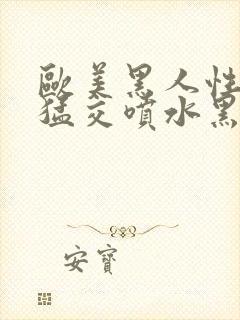 歐美黑人性
猛交噴水黑
安寶